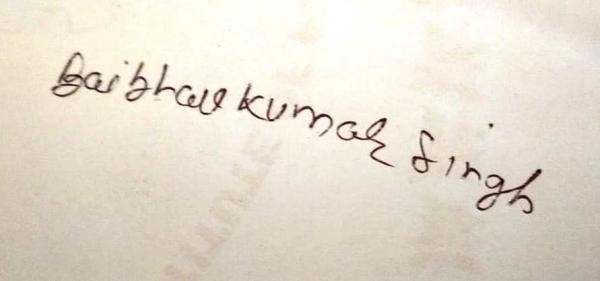 Baibhav Kumar Singh